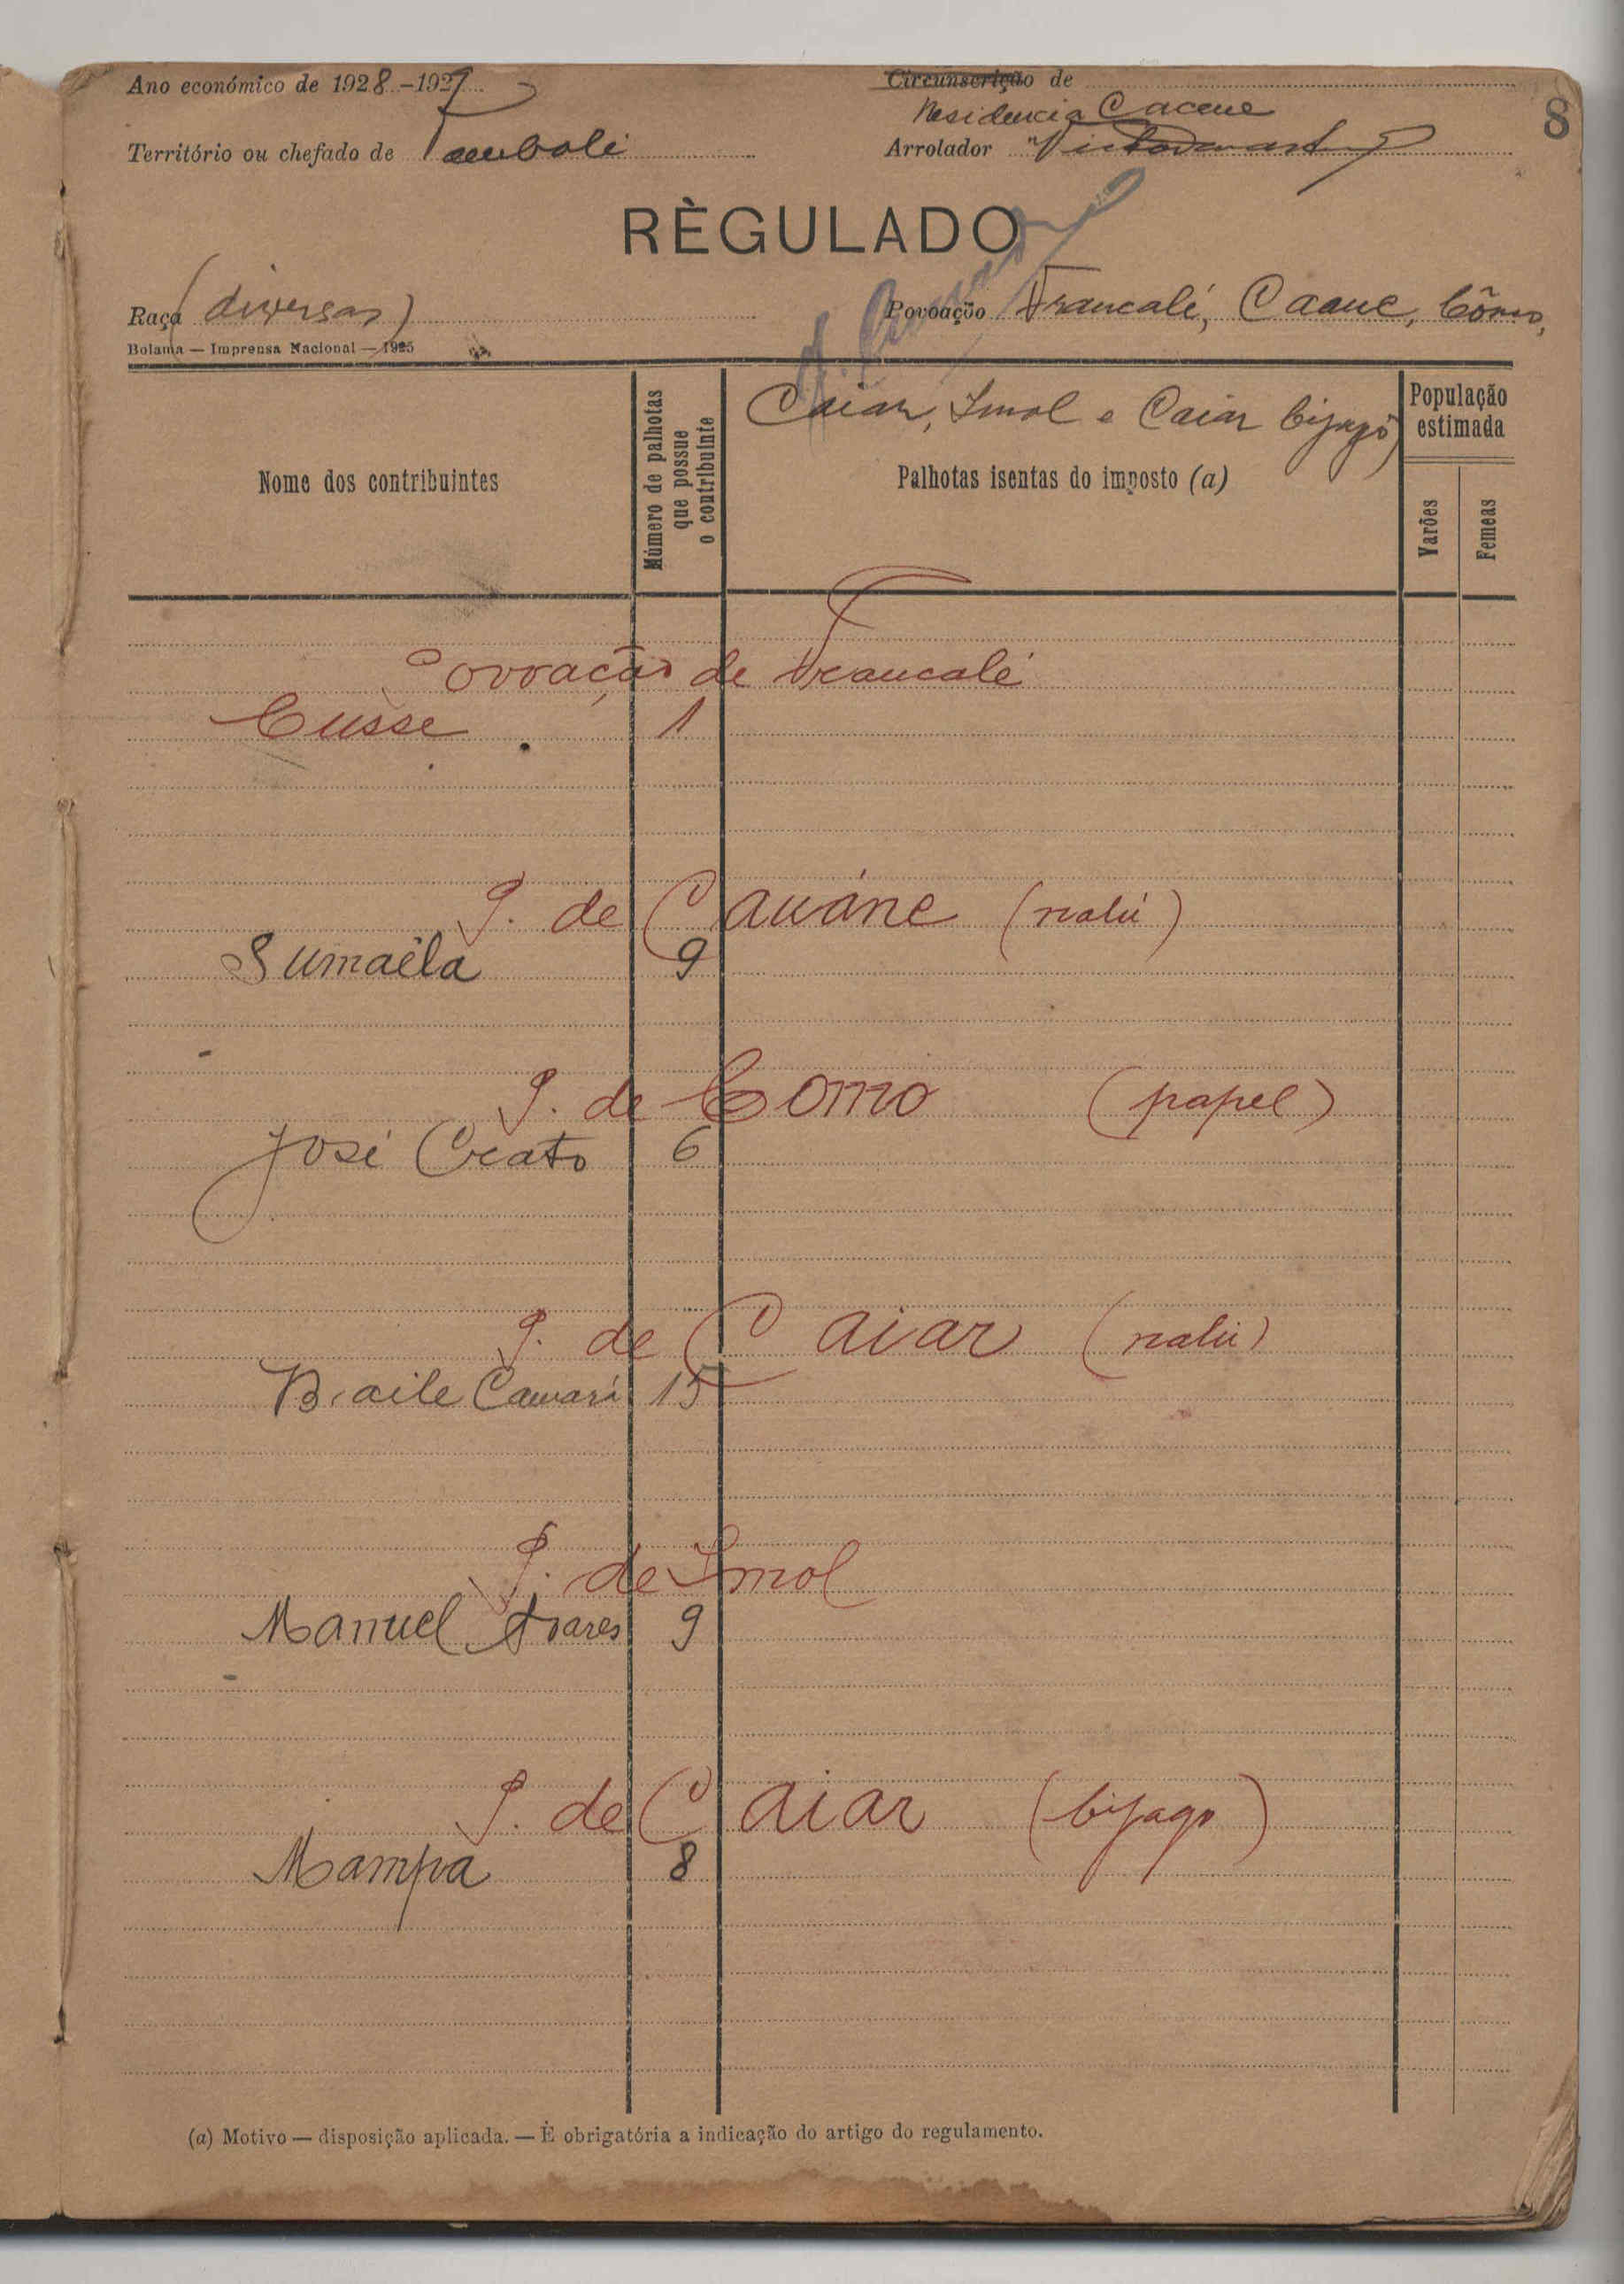 Ano económico de 1928-192
Circunscrição de
Residencia Cacene
8
Território ou chefado de Tombali
Arrolador
RÈGULADO
Raça (diversas)
Povoação Francalé, Caane, Cômo,
Bolama — Imprensa Nacional — 1925
Caiar, Imol e Caiar bijagó
Nome dos contribuintes
Múmero de palhotas que possue o contribuinte
Palhotas isentas do imposto (a)
População estimada
Varões
Femeas
Povoação de Francalé
Cusse 1
P. de Cauáne (nalú)
Sumaéla 9
P. de Como (papel)
José Crato 6
P. de Caiar (nalú)
Braile Camará 15
P. de Imol
Manuel Soares 9
P. de Caiar (bijago)
Mampa 8
(a) Motivo — disposição aplicada. — É obrigatória a indicação do artigo do regulamento.